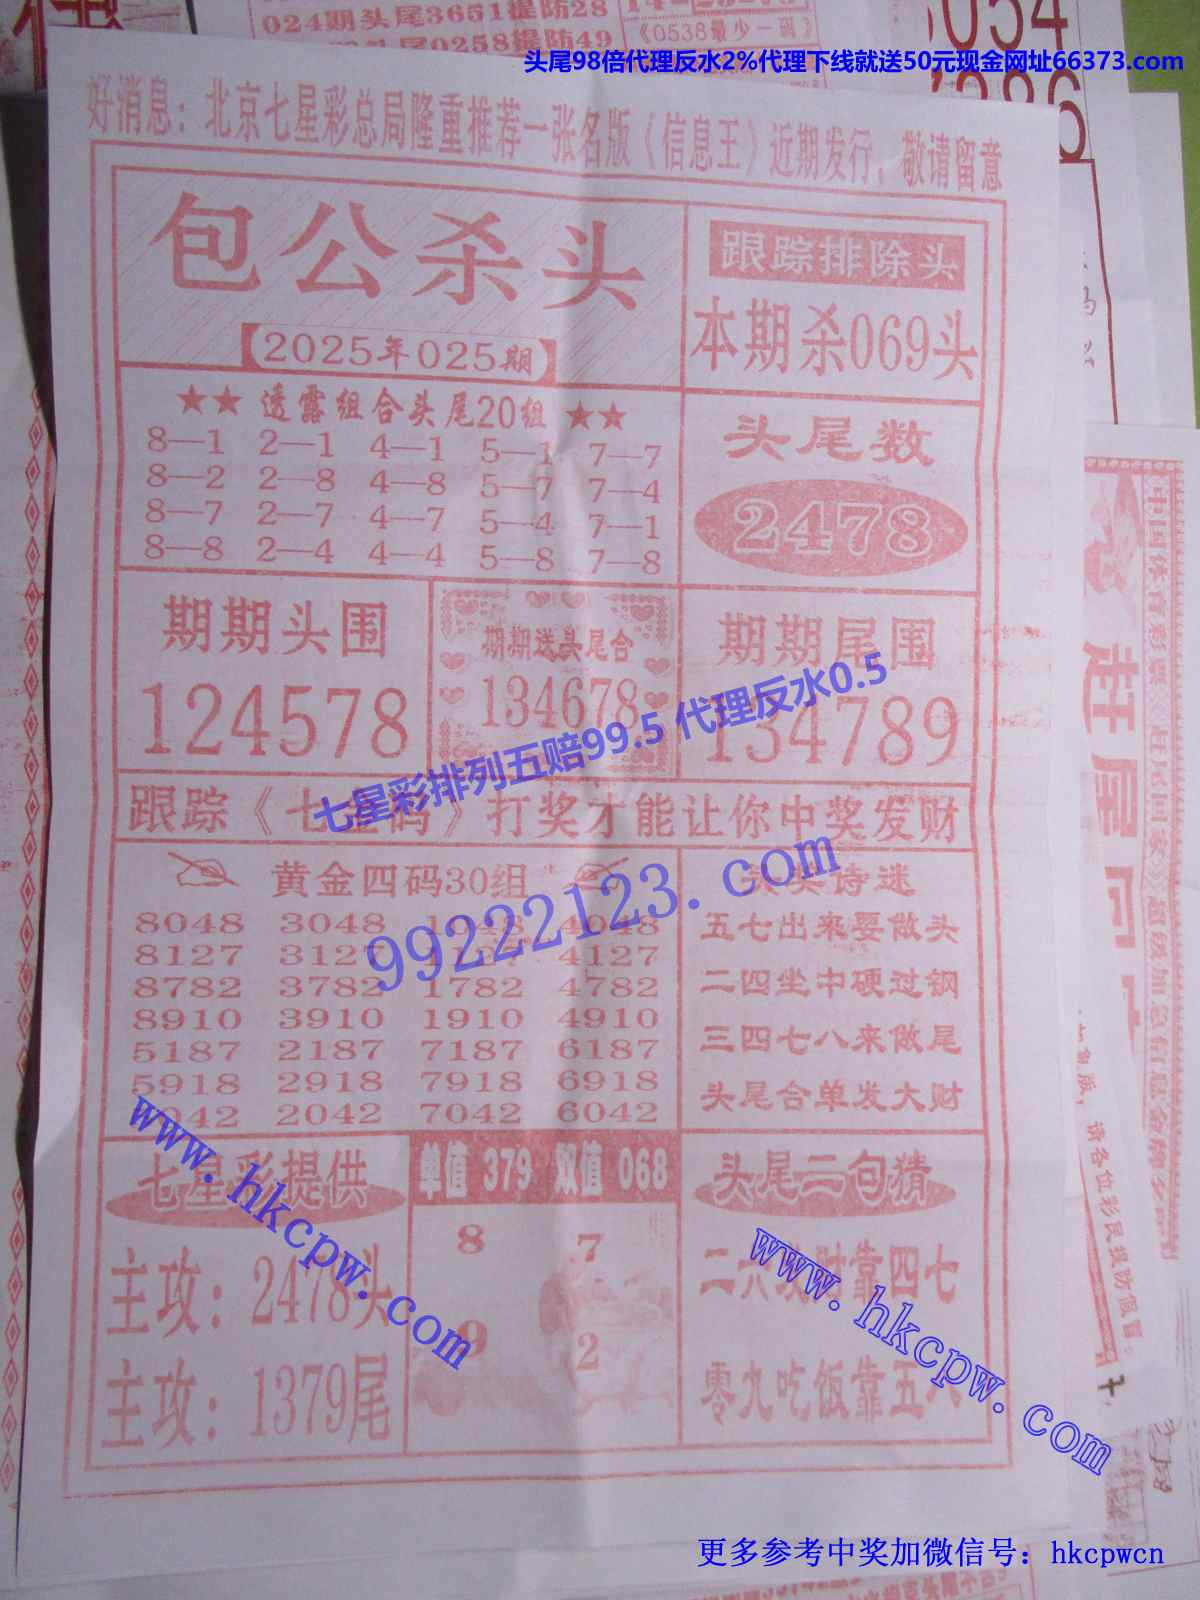 024期头尾3651提防28
头尾0258提防49
14-25-27-
《0538最少一码》
头尾98倍代理反水2%代理下线就送50元现金网址66373.com
好消息：北京七星彩总局隆重推荐一张名版《信息王》近期发行，敬请留意
包公杀头
【2025年025期】
跟踪排除头
本期杀069头
★★ 透露组合头尾20组 ★★
8—1 2—1 4—1 5—1 7—7
8—2 2—8 4—8 5—7 7—4
8—7 2—7 4—7 5—4 7—1
8—8 2—4 4—4 5—8 7—8
头尾数
2478
期期头围
124578
期期送头尾合
134678
期期尾围
134789
七星彩排列五赔99.5 代理反水0.5
跟踪《七星码》打奖才能让你中奖发财
黄金四码30组
8048 3048 1048 4048
8127 3127 1127 4127
8782 3782 1782 4782
8910 3910 1910 4910
5187 2187 7187 6187
5918 2918 7918 6918
042 2042 7042 6042
99222123.com
诗迷
五七出来要做头
二四坐中硬过钢
三四七八来做尾
头尾合单发大财
www.hkcpw.com
七星彩提供
主攻：2478头
主攻：1379尾
单值 379 双值 068
8 7
9 2
头尾二句猜
二六发财靠四七
零九吃饭靠五八
www.hkcpw.com
赶尾
请各位彩民提防假冒。
更多参考中奖加微信号：hkcpwcn